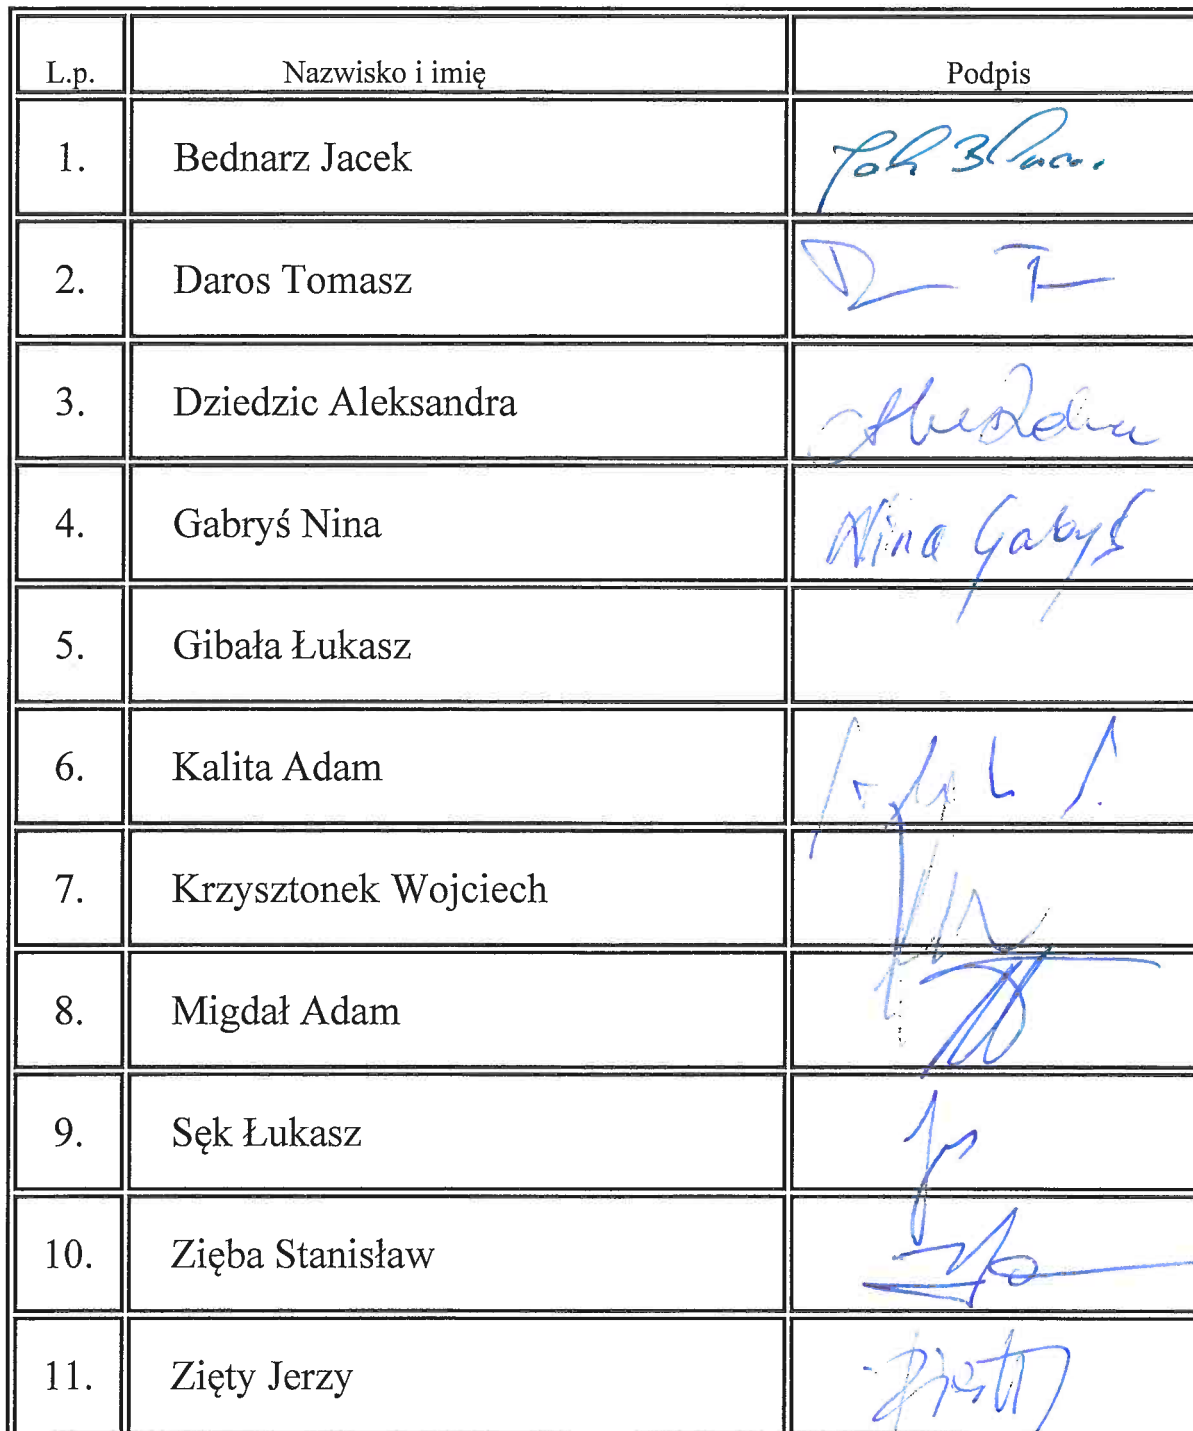 L.p. Nazwisko i imię Podpis
1. Bednarz Jacek
2. Daros Tomasz
3. Dziedzic Aleksandra
4. Gabryś Nina Nina Gabryś
5. Gibała Łukasz
6. Kalita Adam
7. Krzysztonek Wojciech
8. Migdał Adam
9. Sęk Łukasz
10. Zięba Stanisław
11. Zięty Jerzy